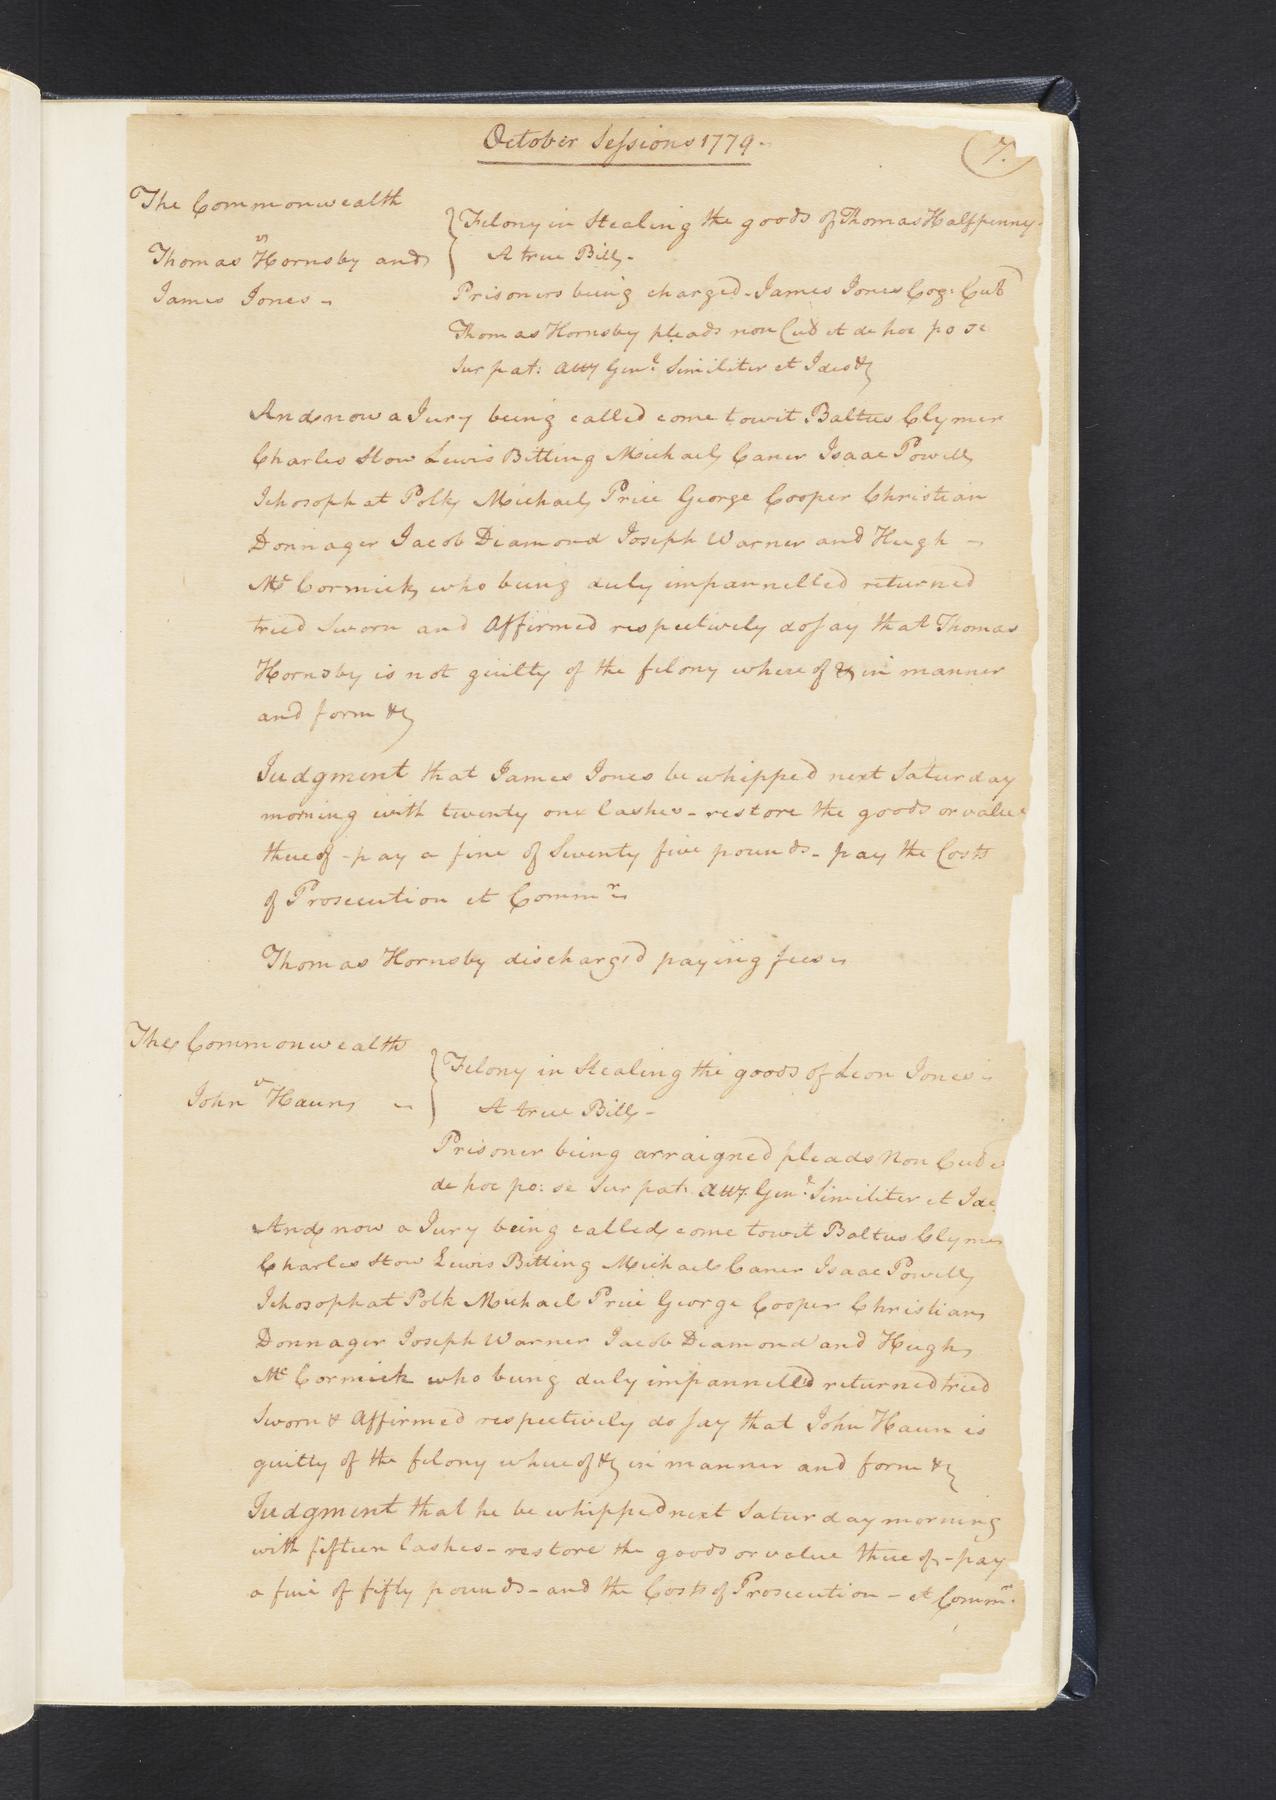 October Sessions 1779.
7.
The Commonwealth
vs
Thomas Hornsby and
James Jones
Felony in Stealing the goods of Thomas Halfpenny.
A true Bill.
Prisoners being charged. James Jones Cog: Cul
Thomas Hornsby pleads non Cul et de hoc po se
Sur pat: Atty Genl. Similiter et Ideo &c
And now a Jury being called come towit Baltus Clymer
Charles Stow Lewis Bitting Michael Caner Isaac Powell
Jehosophat Polk Michael Price George Cooper Christian
Donnager Jacob Diamond Joseph Warner and Hugh
Mc Cormick who being duly impannelled returned
tried Sworn and Affirmed respectively do say that Thomas
Hornsby is not guilty of the felony whereof &c in manner
and form &c
Judgment that James Jones be whipped next Saturday
morning with twenty one lashes - restore the goods or value
thereof - pay a fine of Seventy five pounds - pay the Costs
of Prosecution et Commr
Thomas Hornsby discharged paying fees
The Commonwealth
v
John Haun
Felony in Stealing the goods of Leon Jones
A true Bill -
Prisoner being arraigned pleads Non Cul e
de hoc po: se Sur pat: Atty Genl. Similiter et Ide
And now a Jury being called come towit Baltus Clyme
Charles Stow Lewis Bitting Michael Caner Isaac Powell
Jehosophat Polk Michael Price George Cooper Christian
Donnager Joseph Warner Jacob Diamond and Hugh
Mc Cormick who being duly impannelled returned tried
Sworn & Affirmed respectively do say that John Haun is
guilty of the felony whereof &c in manner and form &c
Judgment that he be whipped next Saturday morning
with fifteen lashes - restore the goods or value thereof - pay
a fine of fifty pounds - and the Costs of Prosecution - et Commr.